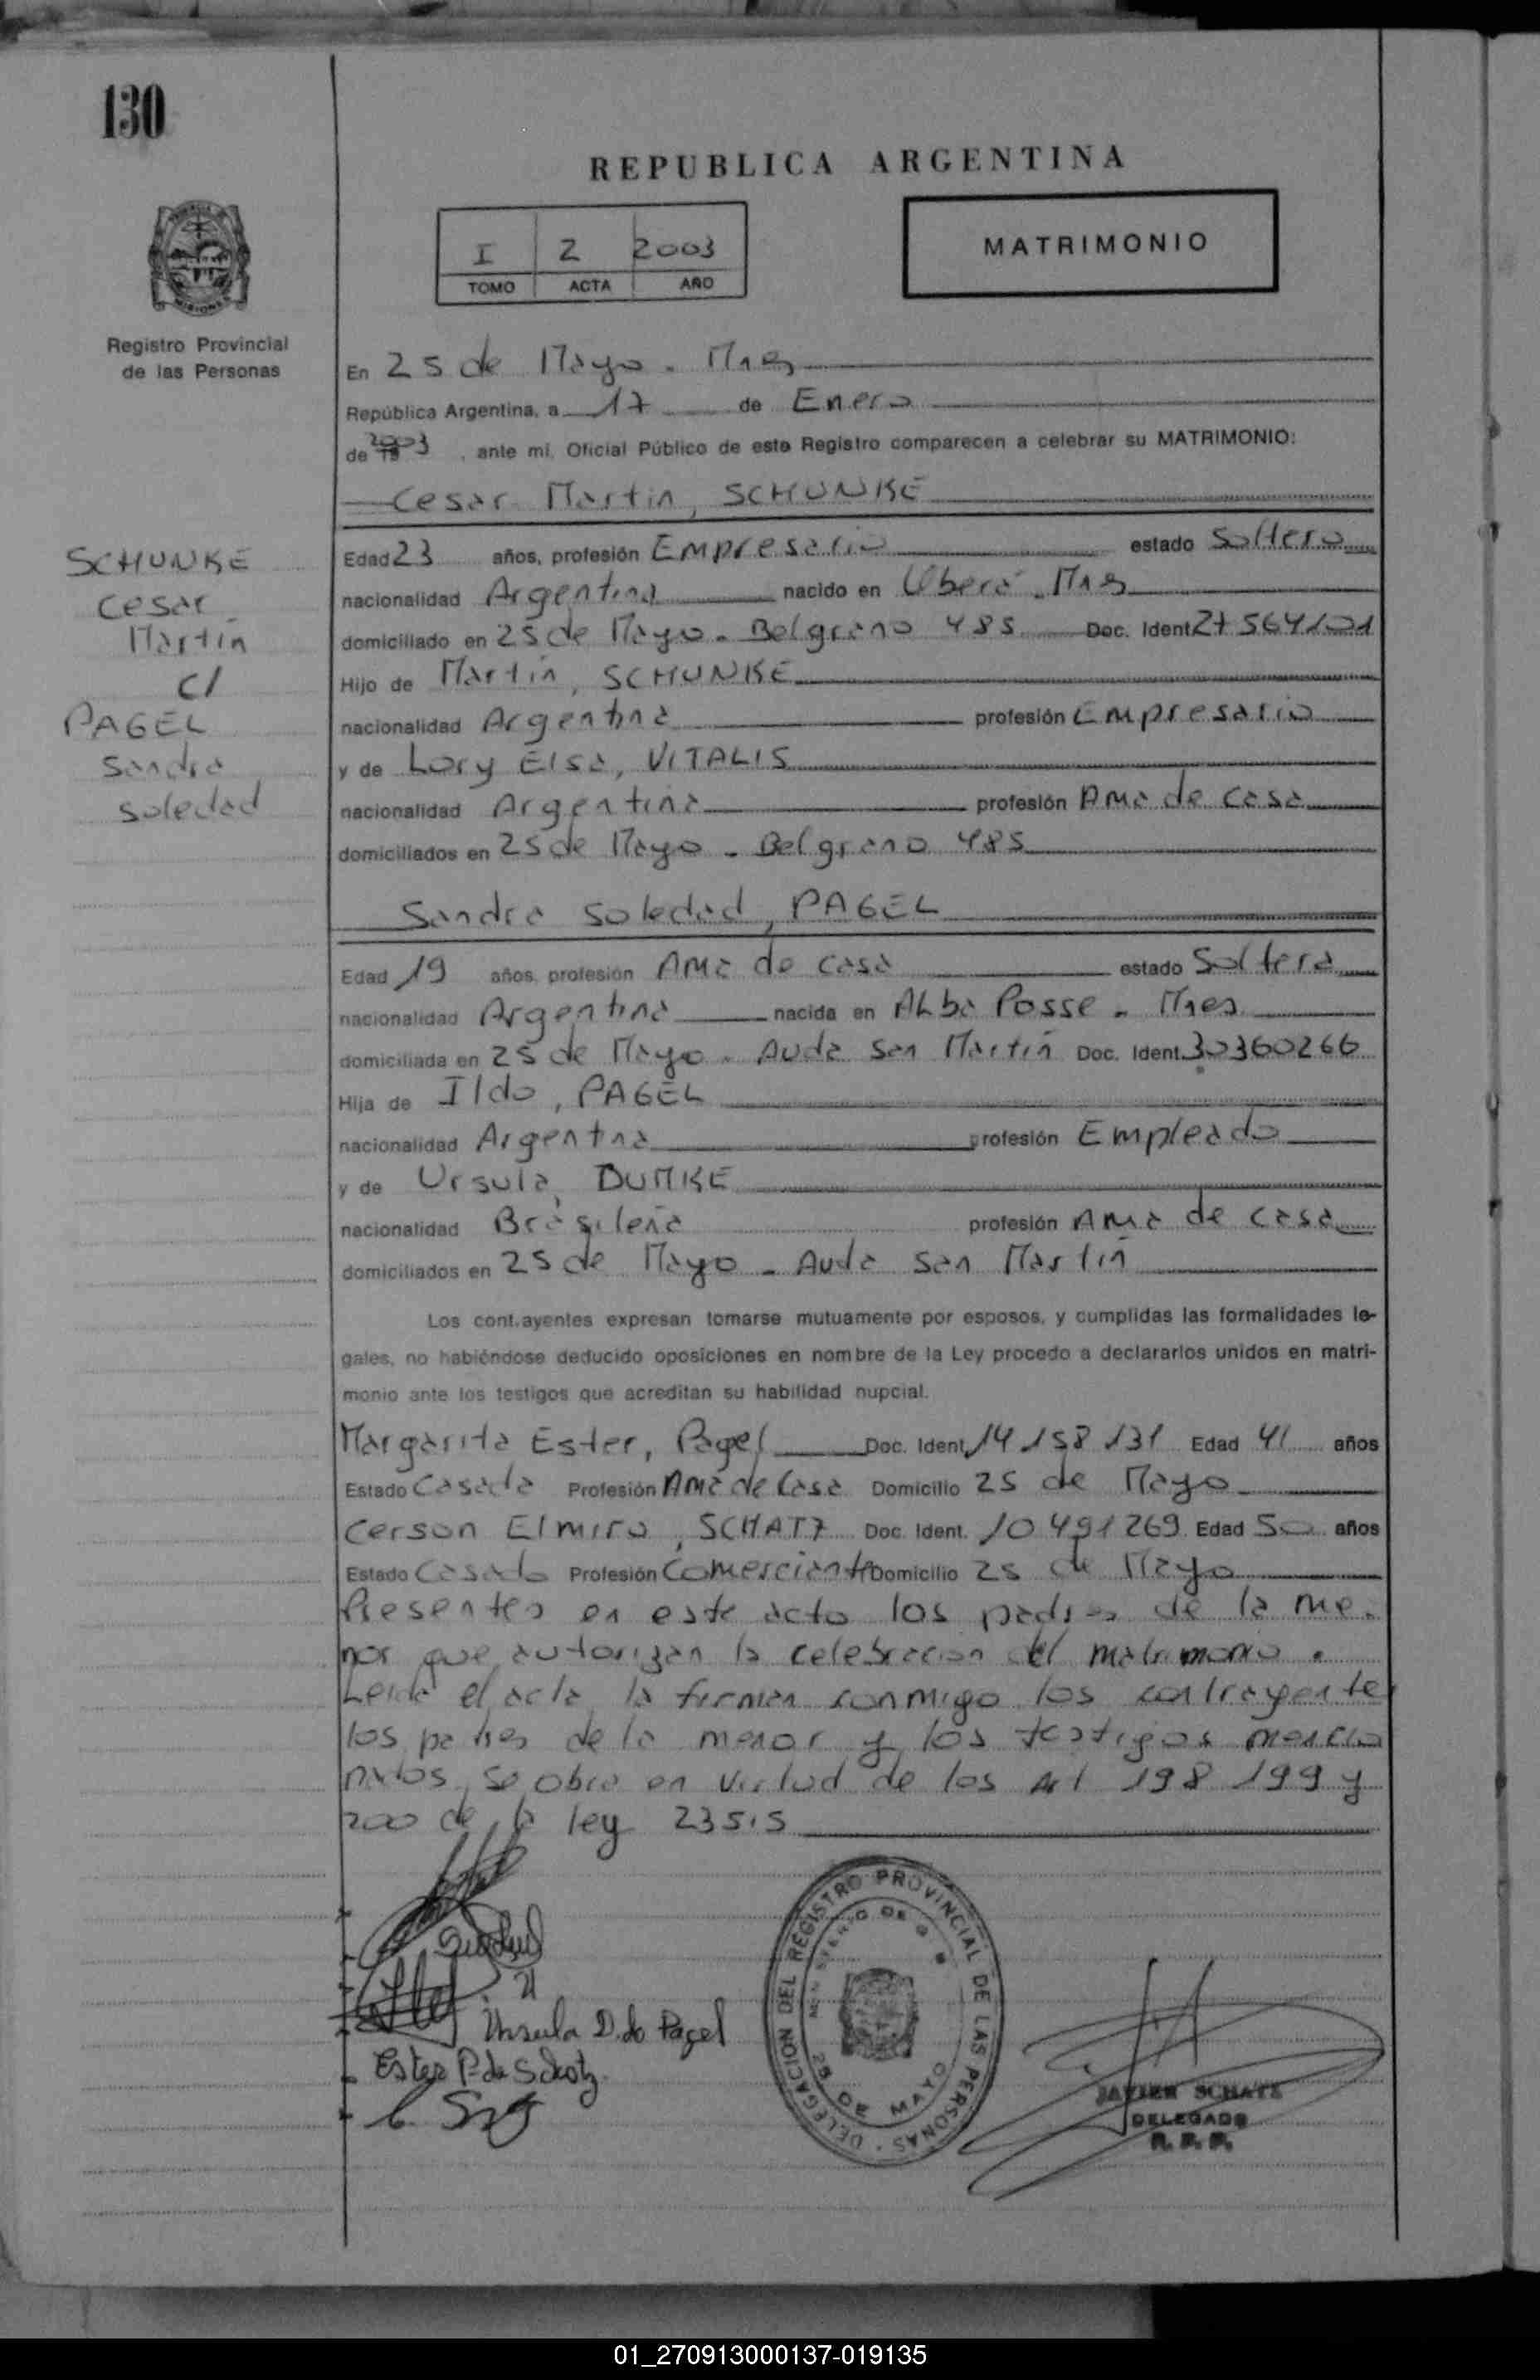 130
REPUBLICA ARGENTINA
I 2 2003
TOMO ACTA AÑO
MATRIMONIO
Registro Provincial
de las Personas
En 25 de Mayo - Mnes
República Argentina, a 17 de Enero
de 2003, ante mi, Oficial Público de este Registro comparecen a celebrar su MATRIMONIO:
Cesar Martin, SCHUNKE
SCHUNKE
Cesar
Martín
c/
PAGEL
Sandra
Soledad
Edad 23 años, profesión Empresario estado Soltero
nacionalidad Argentina nacido en Oberá - Mnes
domiciliado en 25 de Mayo - Belgrano 485 Doc. Ident. 27564101
Hijo de Martin, SCHUNKE
nacionalidad Argentina profesión Empresario
y de Lory Elsa, VITALIS
nacionalidad Argentina profesión Ama de casa
domiciliados en 25 de Mayo - Belgrano 485
Sandra Soledad, PAGEL
Edad 19 años, profesión Ama de casa estado Soltera
nacionalidad Argentina nacida en Alba Posse - Mnes
domiciliada en 25 de Mayo - Avda San Martín Doc. Ident. 30360266
Hija de Ildo, PAGEL
nacionalidad Argentina profesión Empleado
y de Ursula, DUMKE
nacionalidad Brasileña profesión Ama de casa
domiciliados en 25 de Mayo - Avda San Martín
Los contrayentes expresan tomarse mutuamente por esposos, y cumplidas las formalidades le-
gales, no habiéndose deducido oposiciones en nombre de la Ley procedo a declararlos unidos en matri-
monio ante los testigos que acreditan su habilidad nupcial.
Margarita Ester, Pagel Doc. Ident. 14 158 131 Edad 41 años
Estado Casada Profesión Ama de Casa Domicilio 25 de Mayo
Cerson Elmiro, SCHATZ Doc. Ident. 10 491 269 Edad 50 años
Estado Casado Profesión Comerciante Domicilio 25 de Mayo
Presentes en este acto los padres de la me-
nor que autorizan la celebracion del matrimonio.
Leida el acta la firman conmigo los contrayente
los padres de la menor y los testigos mencio
nados, se obra en virtud de los Art 198 199 y
200 de la ley 23515
Ursula D. de Pagel
Ester P. de Schatz
DELEGACION DEL REGISTRO PROVINCIAL DE LAS PERSONAS
25 DE MAYO
JAVIER SCHATZ
DELEGADO
R. P. P.
01_270913000137-019135